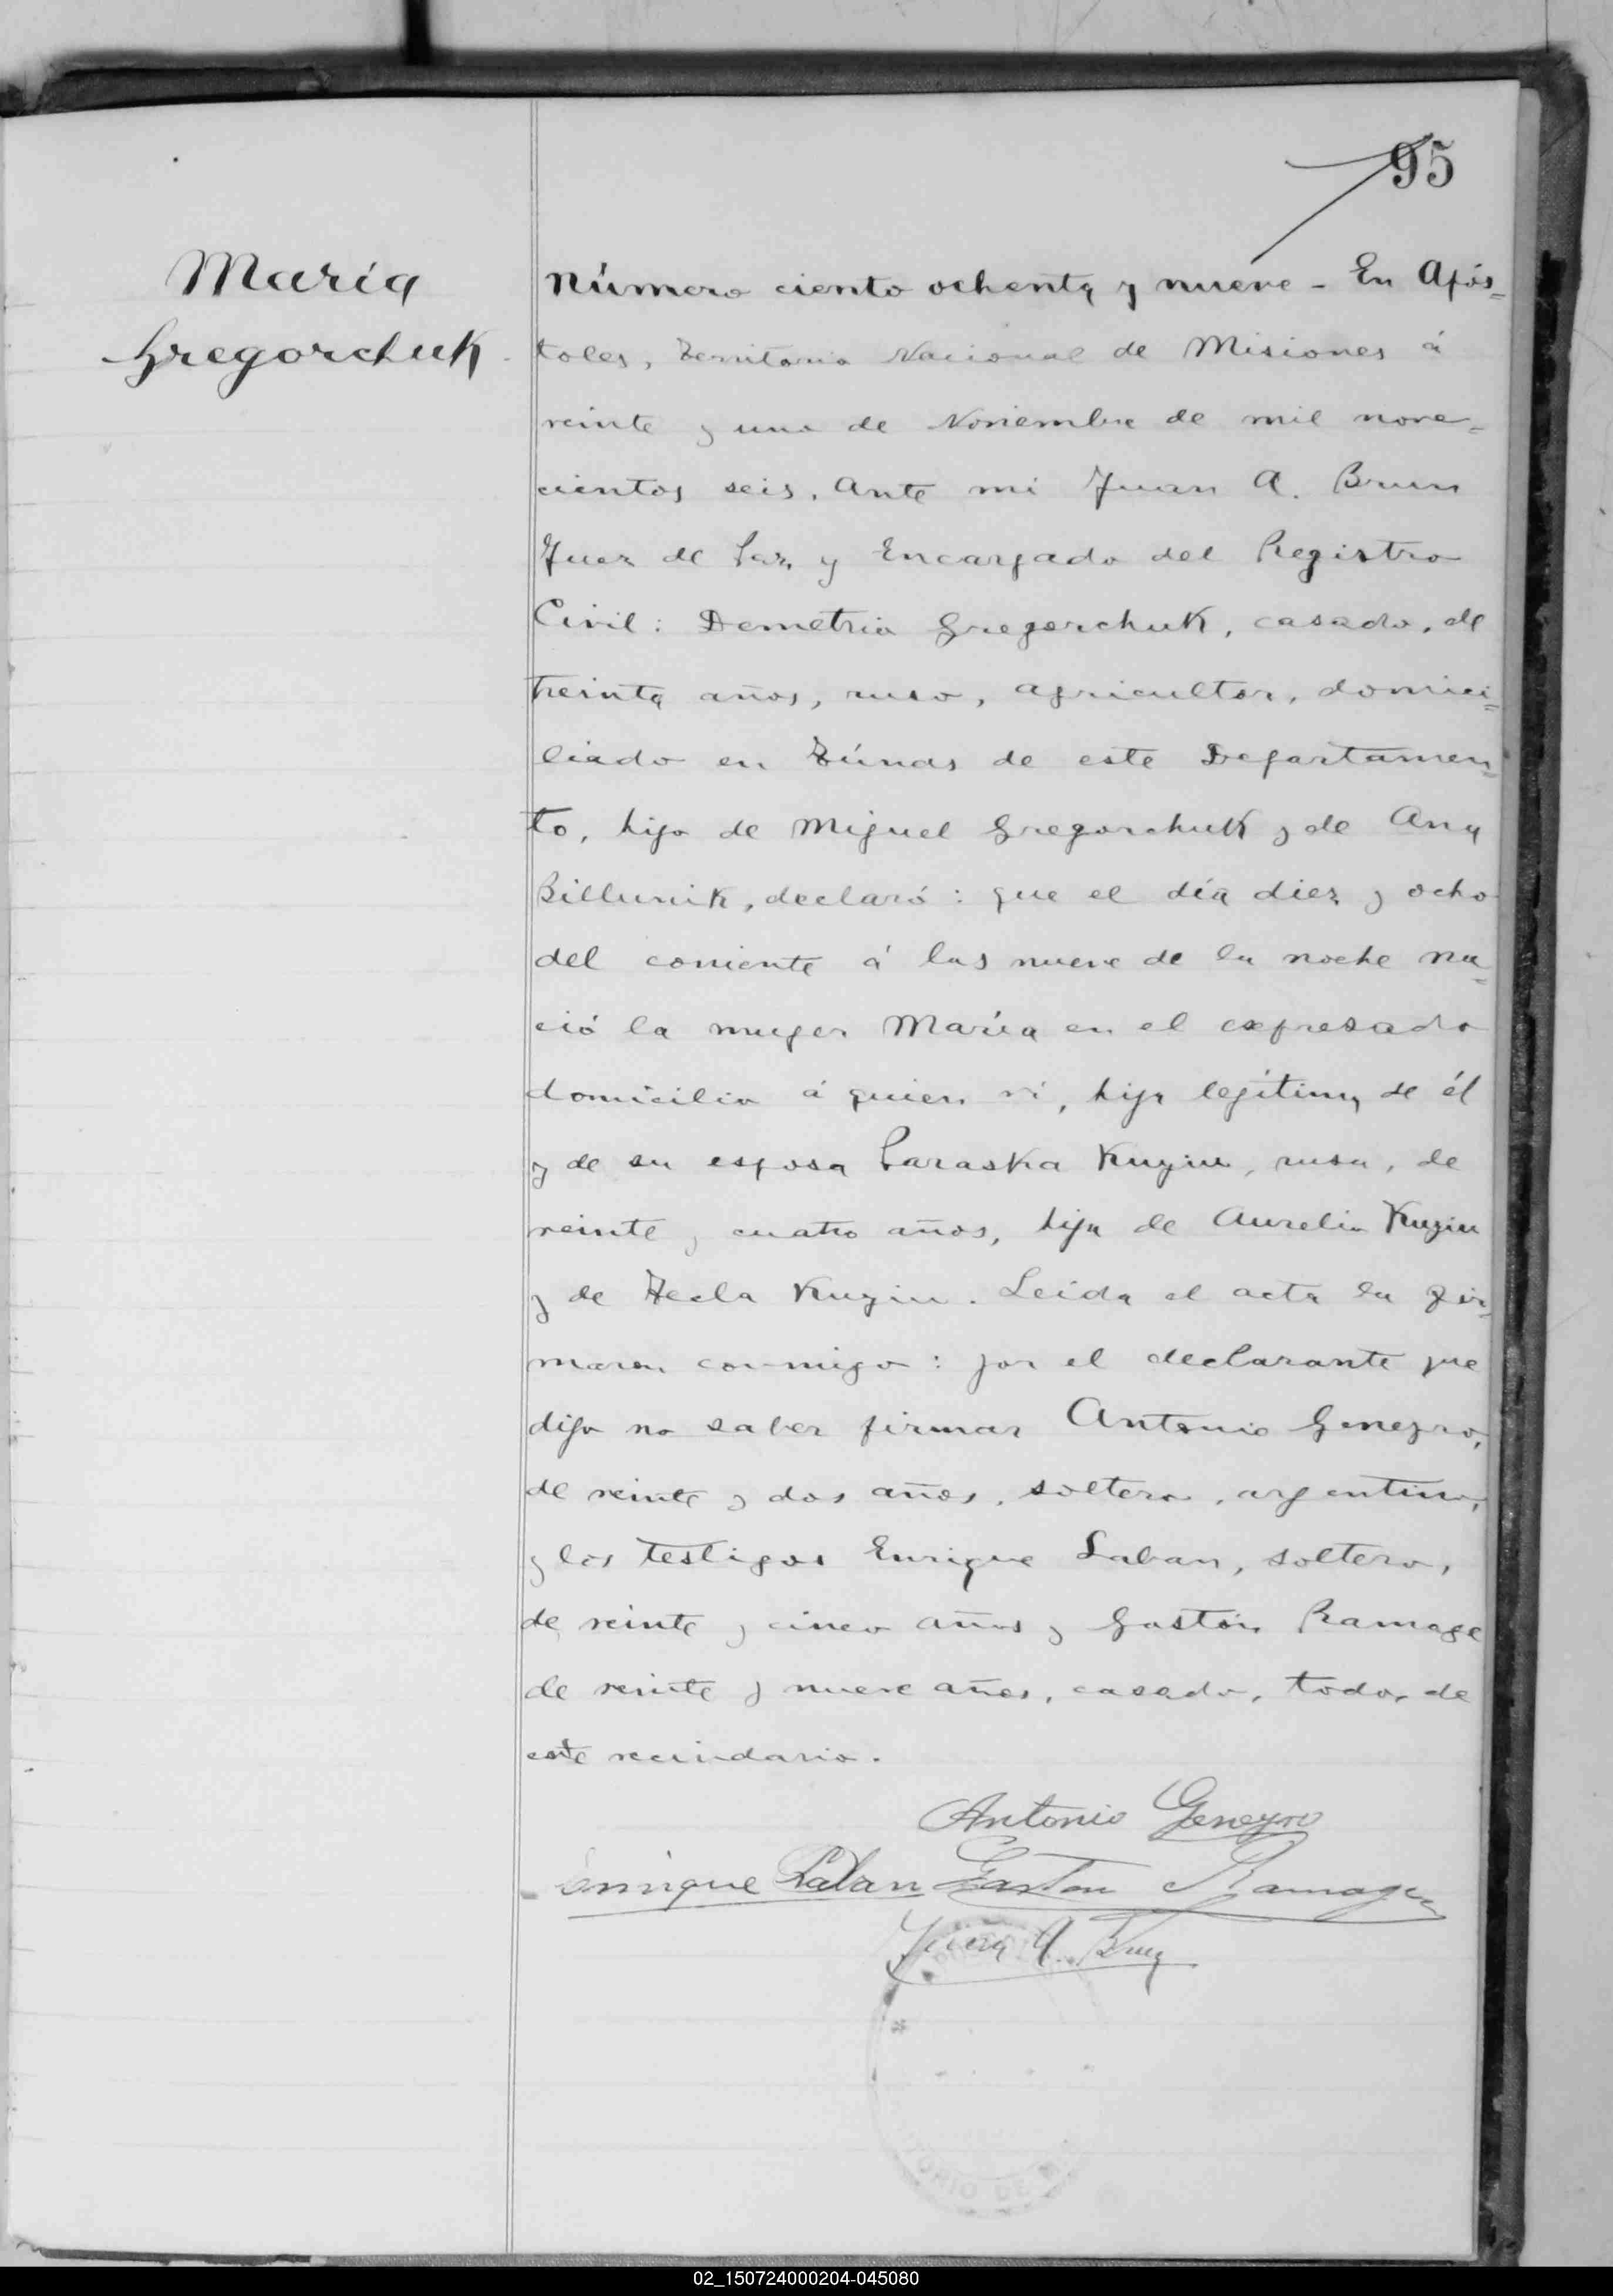 95
María
Gregorchuk
Número ciento ochenta y nueve - En Após=
toles, Territorio Nacional de Misiones á
veinte y uno de Noviembre de mil nove=
cientos seis. Ante mi Juan A. Brun
Juez de Paz y Encargado del Registro
Civil: Demetrio Gregorchuk, casado, de
treinta años, ruso, agricultor, domici=
liado en Túnas de este Departamen=
to, hijo de Miguel Gregorchuk y de Ana
Billunik, declaró: que el día diez y ocho
del corriente á las nueve de la noche na=
ció la muger María en el expresado
domicilio á quien vi, hija legítima de él
y de su esposa Paraska Kuziu, rusa, de
veinte y cuatro años, hija de Aurelio Kuziu
y de Tecla Kuziu. Leida el acta la fir=
maron conmigo: por el declarante que
dijo no saber firmar Antonio Geneyro,
de veinte y dos años, soltero, argentino,
y los testigos Enrique Laban, soltero,
de veinte y cinco años y Gastón Ramage
de veinte y nueve años, casado, todos de
este vecindario.
Antonio Geneyro
Enrique Laban Gaston Ramage
Juan A. Brun
TORIO DE M
02_150724000204-045080